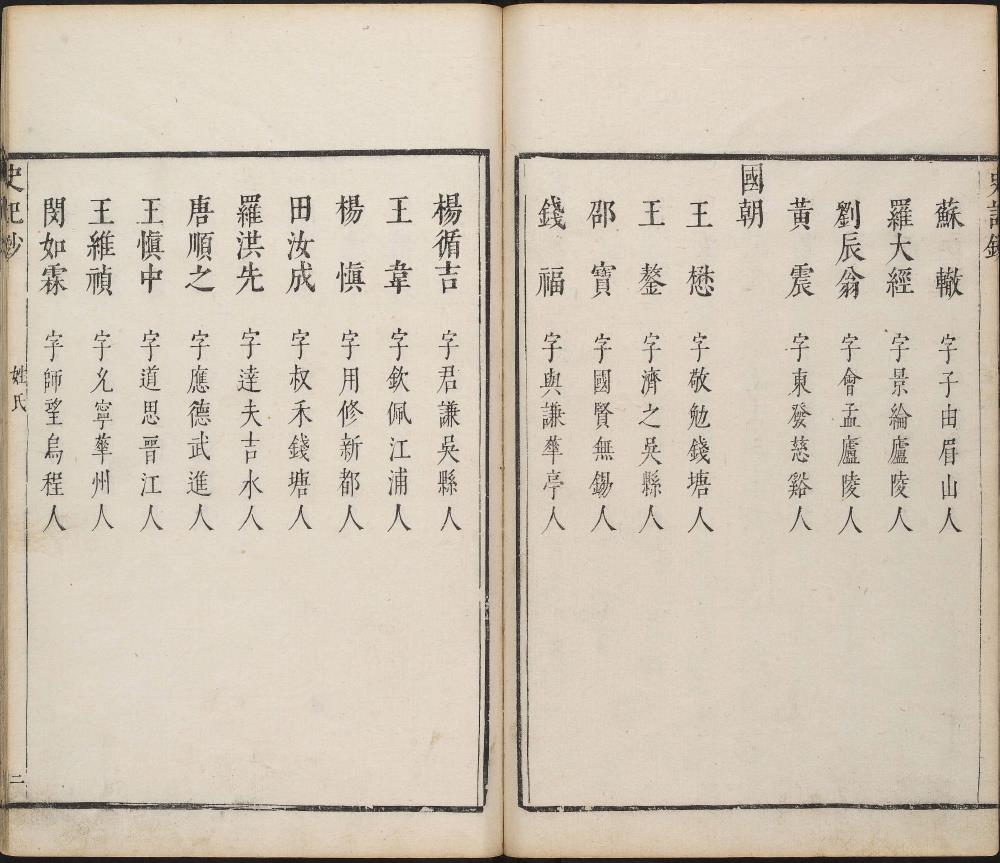 史記鈔
蘇轍 字子由眉山人
羅大經 字景綸廬陵人
劉辰翁 字會孟廬陵人
黃震 字東發慈谿人
國朝
王懋 字敬勉錢塘人
王鏊 字濟之吳縣人
邵寶 字國賢無錫人
錢福 字與謙華亭人
楊循吉 字君謙吳縣人
王韋 字欽佩江浦人
楊慎 字用修新都人
田汝成 字叔禾錢塘人
羅洪先 字達夫吉水人
唐順之 字應德武進人
王慎中 字道思晉江人
王維禎 字允寧華州人
閔如霖 字師望烏程人
史記鈔 姓氏 二